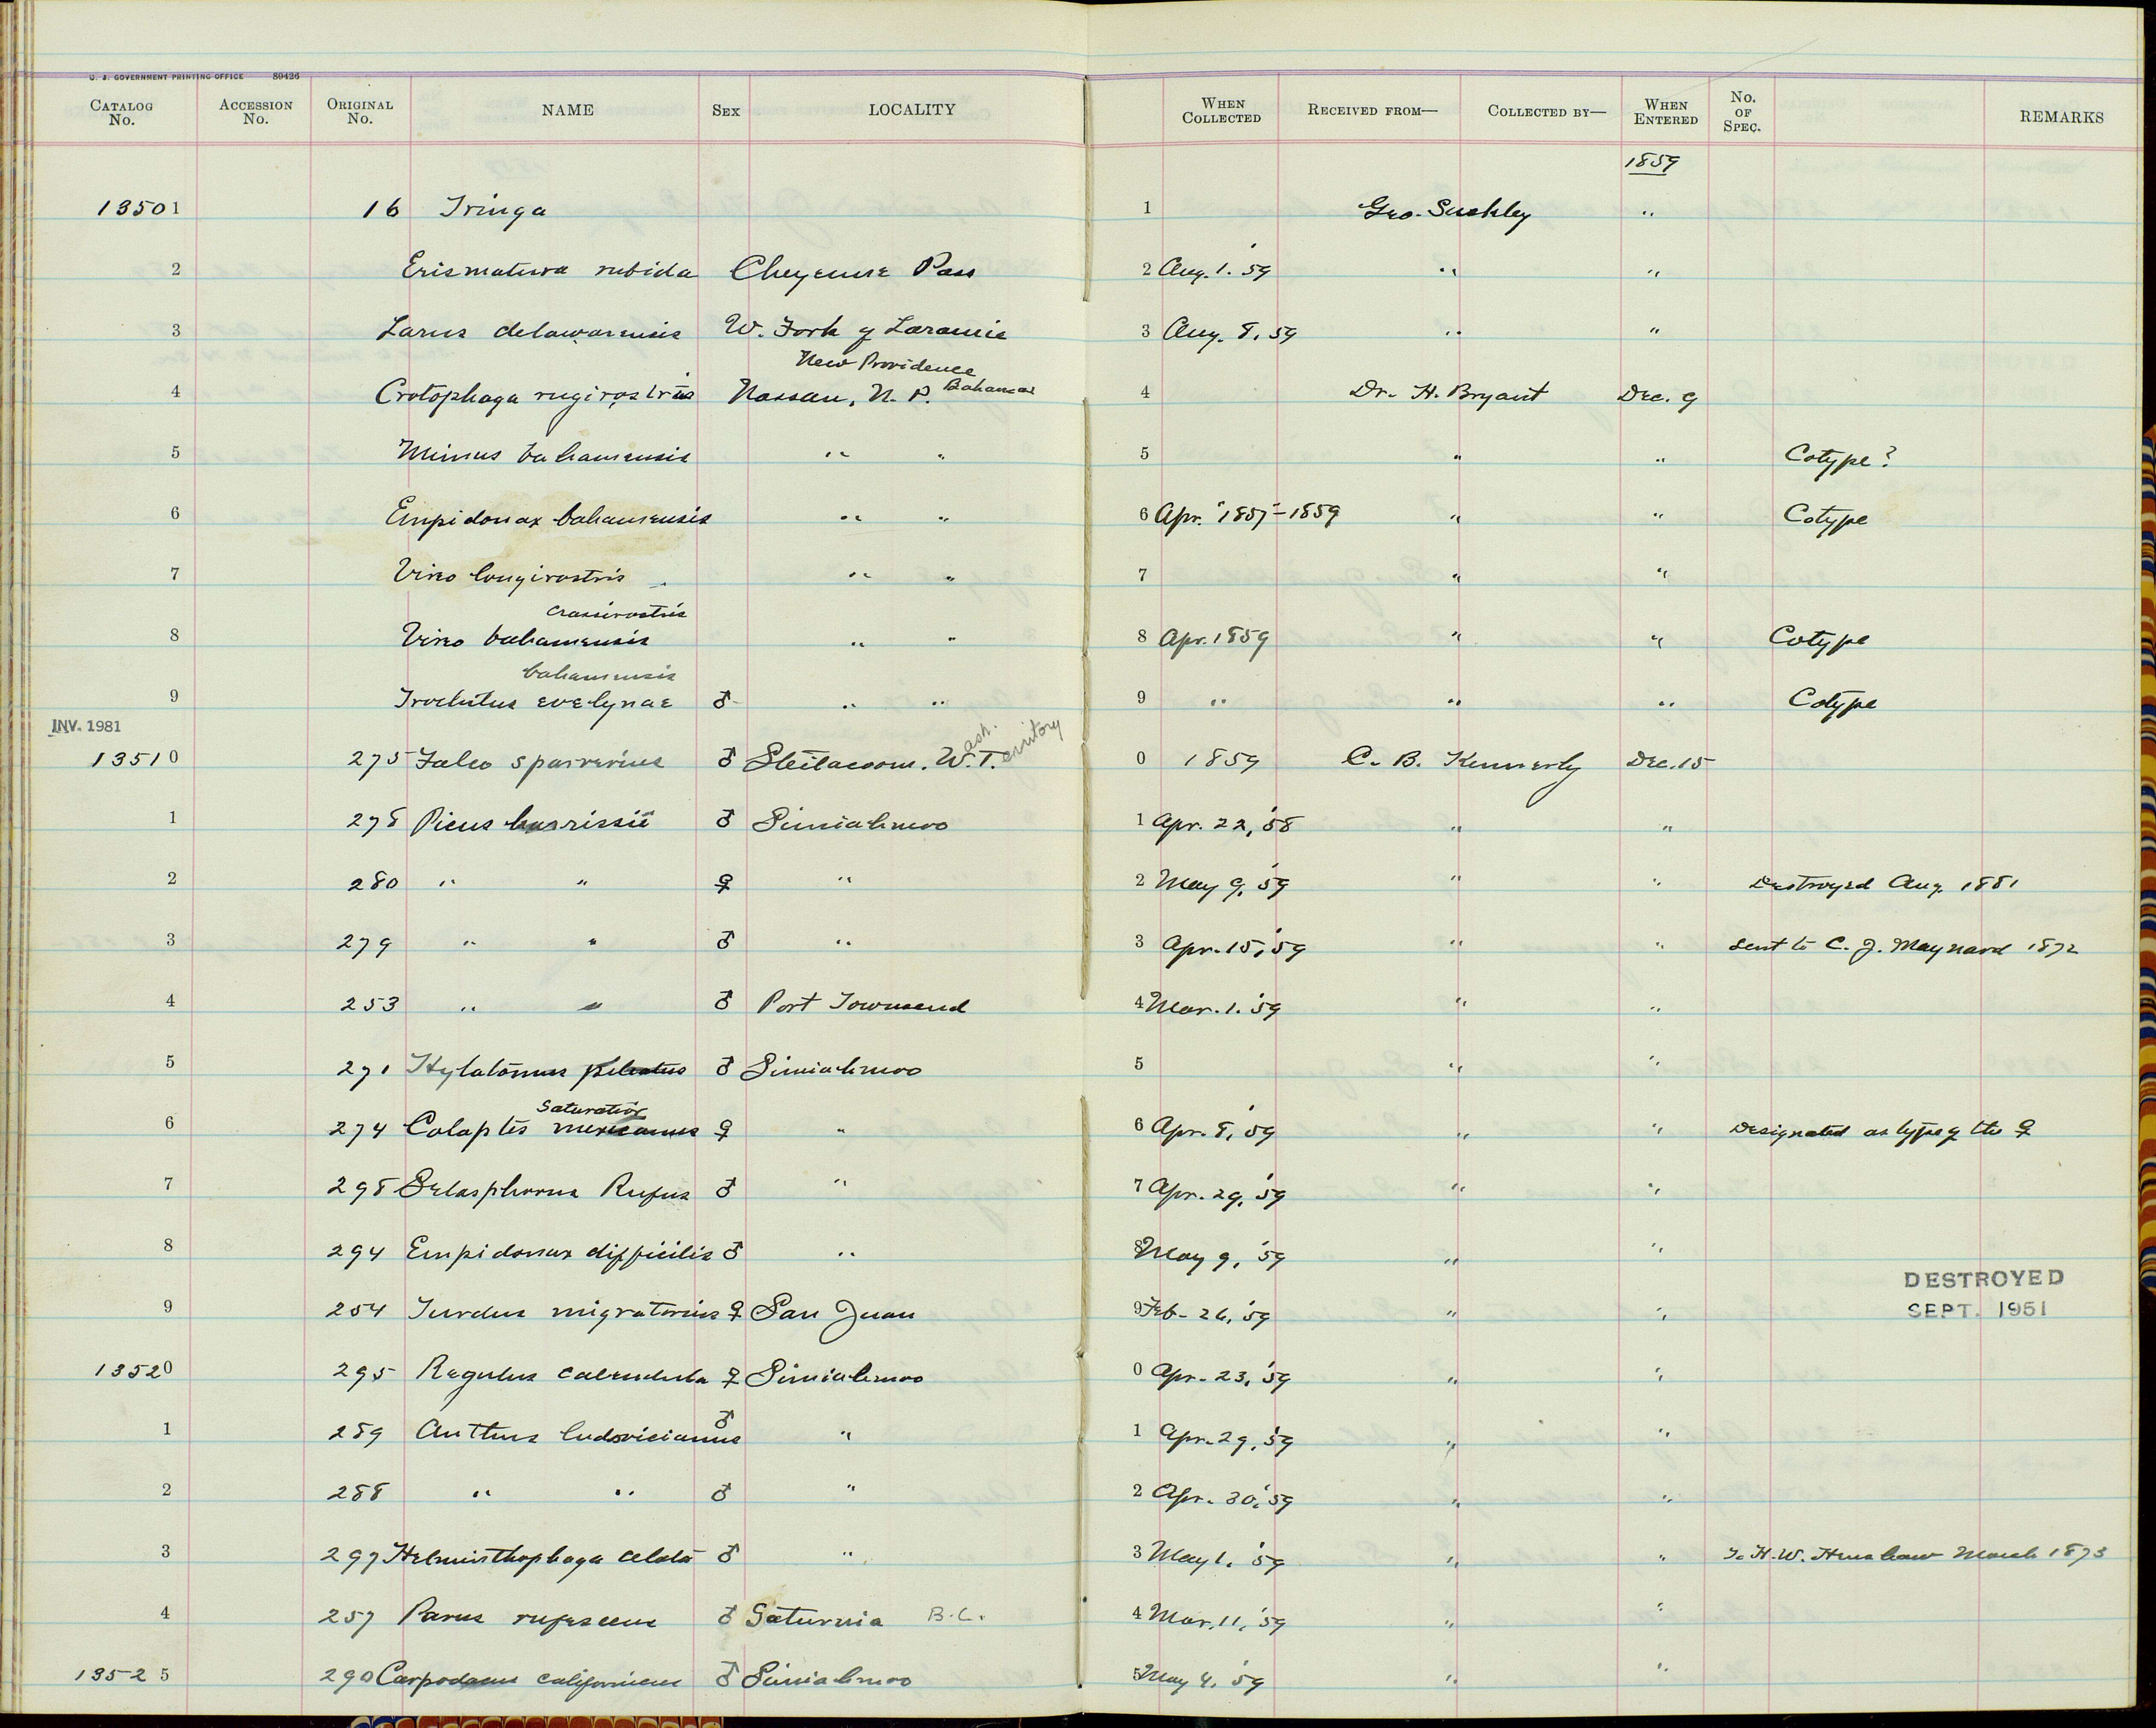 U. S. GOVERNMENT PRINTING OFFICE 80426
CATALOG No. ACCESSION No. ORIGINAL No. NAME SEX LOCALITY WHEN COLLECTED RECEIVED FROM— COLLECTED BY— WHEN ENTERED No. OF SPEC. REMARKS
1859
13501 16 Tringa 1 Geo. Suckley "
2 Erismatura rubida Cheyenne Pass 2 Aug. 1. '59 " "
3 Larus delawarensis W. Fork of Laramie 3 Aug. 8, 59 " "
New Providence
4 Crotophaga rugirostris Nassau, N. P. Bahamas 4 Dr. H. Bryant Dec. 9
5 Mimus bahamensis " " 5 " " Cotype?
6 Empidonax bahamensis " " 6 Apr. "1857-1859 " " Cotype
7 Vireo longirostris " " 7 " "
crassirostris
8 Vireo bahamensis " " 8 Apr. 1859 " " Cotype
bahamensis
9 Trochilus evelynae ♂ " " 9 " " " Cotype
INV. 1981
13510 275 Falco sparverius ♂ Steilacoom. Wash. Territory 0 1859 C. B. Kennerly Dec. 15
1 278 Picus harrissii ♂ Simiahmoo 1 Apr. 22, '58 " "
2 280 " " ♀ " 2 May 9, '59 " " Destroyed Aug. 1881
3 279 " " ♂ " 3 Apr. 15, '59 " " Sent to C. J. Maynard 1872
4 253 " " ♂ Port Townsend 4 Mar. 1. '59 " "
5 271 Hylatomus pileatus ♂ Simiahmoo 5 " "
saturatior
6 274 Colaptes mexicanus ♀ " 6 Apr. 8, '59 " " Designated as type of the ♀
7 298 Selasphorus Rufus ♂ " 7 Apr. 29, '59 " "
8 294 Empidonax difficilis ♂ " 8 May 9, '59 " "
DESTROYED
9 254 Turdus migratorius ♀ San Juan 9 Feb. 26, '59 " " SEPT. 1951
13520 295 Regulus calendula ♀ Simiahmoo 0 Apr. 23, '59 " "
1 289 Anthus ludovicianus ♂ " 1 Apr. 29, '59 " "
2 288 " " ♂ " 2 Apr. 30, '59 " "
3 297 Helminthophaga celata ♂ " 3 May 1, '59 " " To H. W. Henshaw March 1873
4 257 Parus rufescens ♂ Saturnia B.C. 4 Mar. 11, '59 " "
13525 290 Carpodacus californicus ♂ Simiahmoo 5 May 4, '59 " "